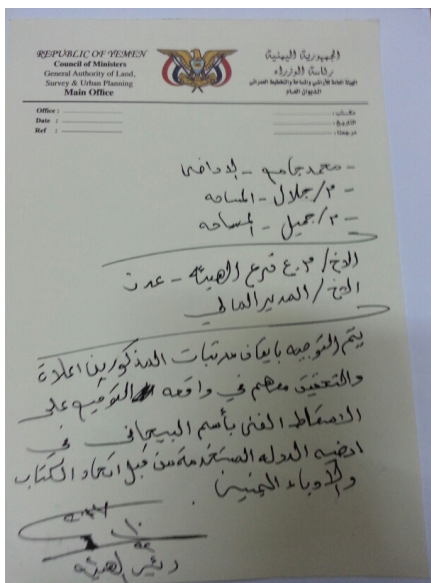 REPUBLIC OF YEMEN
Council of Ministers
General Authority of Land,
Survey & Urban Planning
Main Office
الجمهورية اليمنية
رئاسة الوزراء
الهيئة العامة للأراضي والمساحة والتخطيط العمراني
الديوان العام
Office :
Date :
Ref :
مكتب :
التاريخ :
مرجعنا :
- محمد - الاراضي
- م/جلال - المساحه
- م/جميل - المساحه
الاخ/ م.ع فرع الهيئة - عدن
الاخ/ المدير المالي
يتم التوجيه بايقاف مرتبات المذكورين اعلاة
والتحقيق معهم في واقعه التوقيع على
الاسقاط الفني بأسم البيحاني في
ارضيه الدوله المستخدمة من قبل اتحاد الكتاب
والادباء اليمنيين
رئيس الهيئه